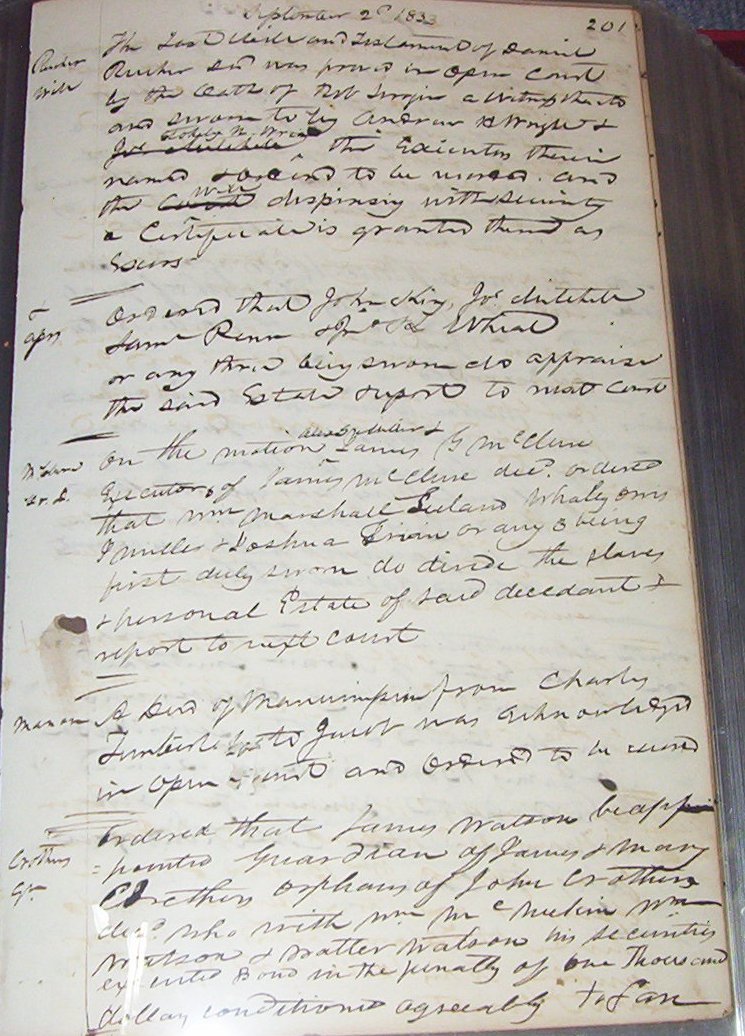 September 2d 1833
201
Rucker
Will
The Last Will and Testament of Daniel
Rucker decd was proved in open Court
by the Oath of a Witness thereto
and sworn to by Andrew H Wright &
Jos Mitchell the Executors therein
named & ordered to be record. and
the Court Will dispensing with Security
a Certificate is granted them as
Exors
aprs
Ordered that John King, Jos Mitchell
Saml Penn & Jno Wheat
or any three being sworn do appraise
the said Estate & report to next Court
McClure
On the motion James G McClure
Executors of James McClure decd. ordered
that Wm Marshall Leeland Whaley
& Joshua or any 3 being
first duly sworn do divide the slaves
& personal Estate of said decedant &
report to next court
Manan
A Deed of Manumission from Charles
to Jacob was acknowledged
in open Court and ordered to be record
Crothers
Gdn
Ordered that James Watson be app
=pointed Guardian of James & Mary
Crothers orphans of John Crothers
decd. who with Wm Mc Wm
Watson & Watson his securities
executed Bond in the penalty of one Thousand
dollars conditioned agreeably to Law